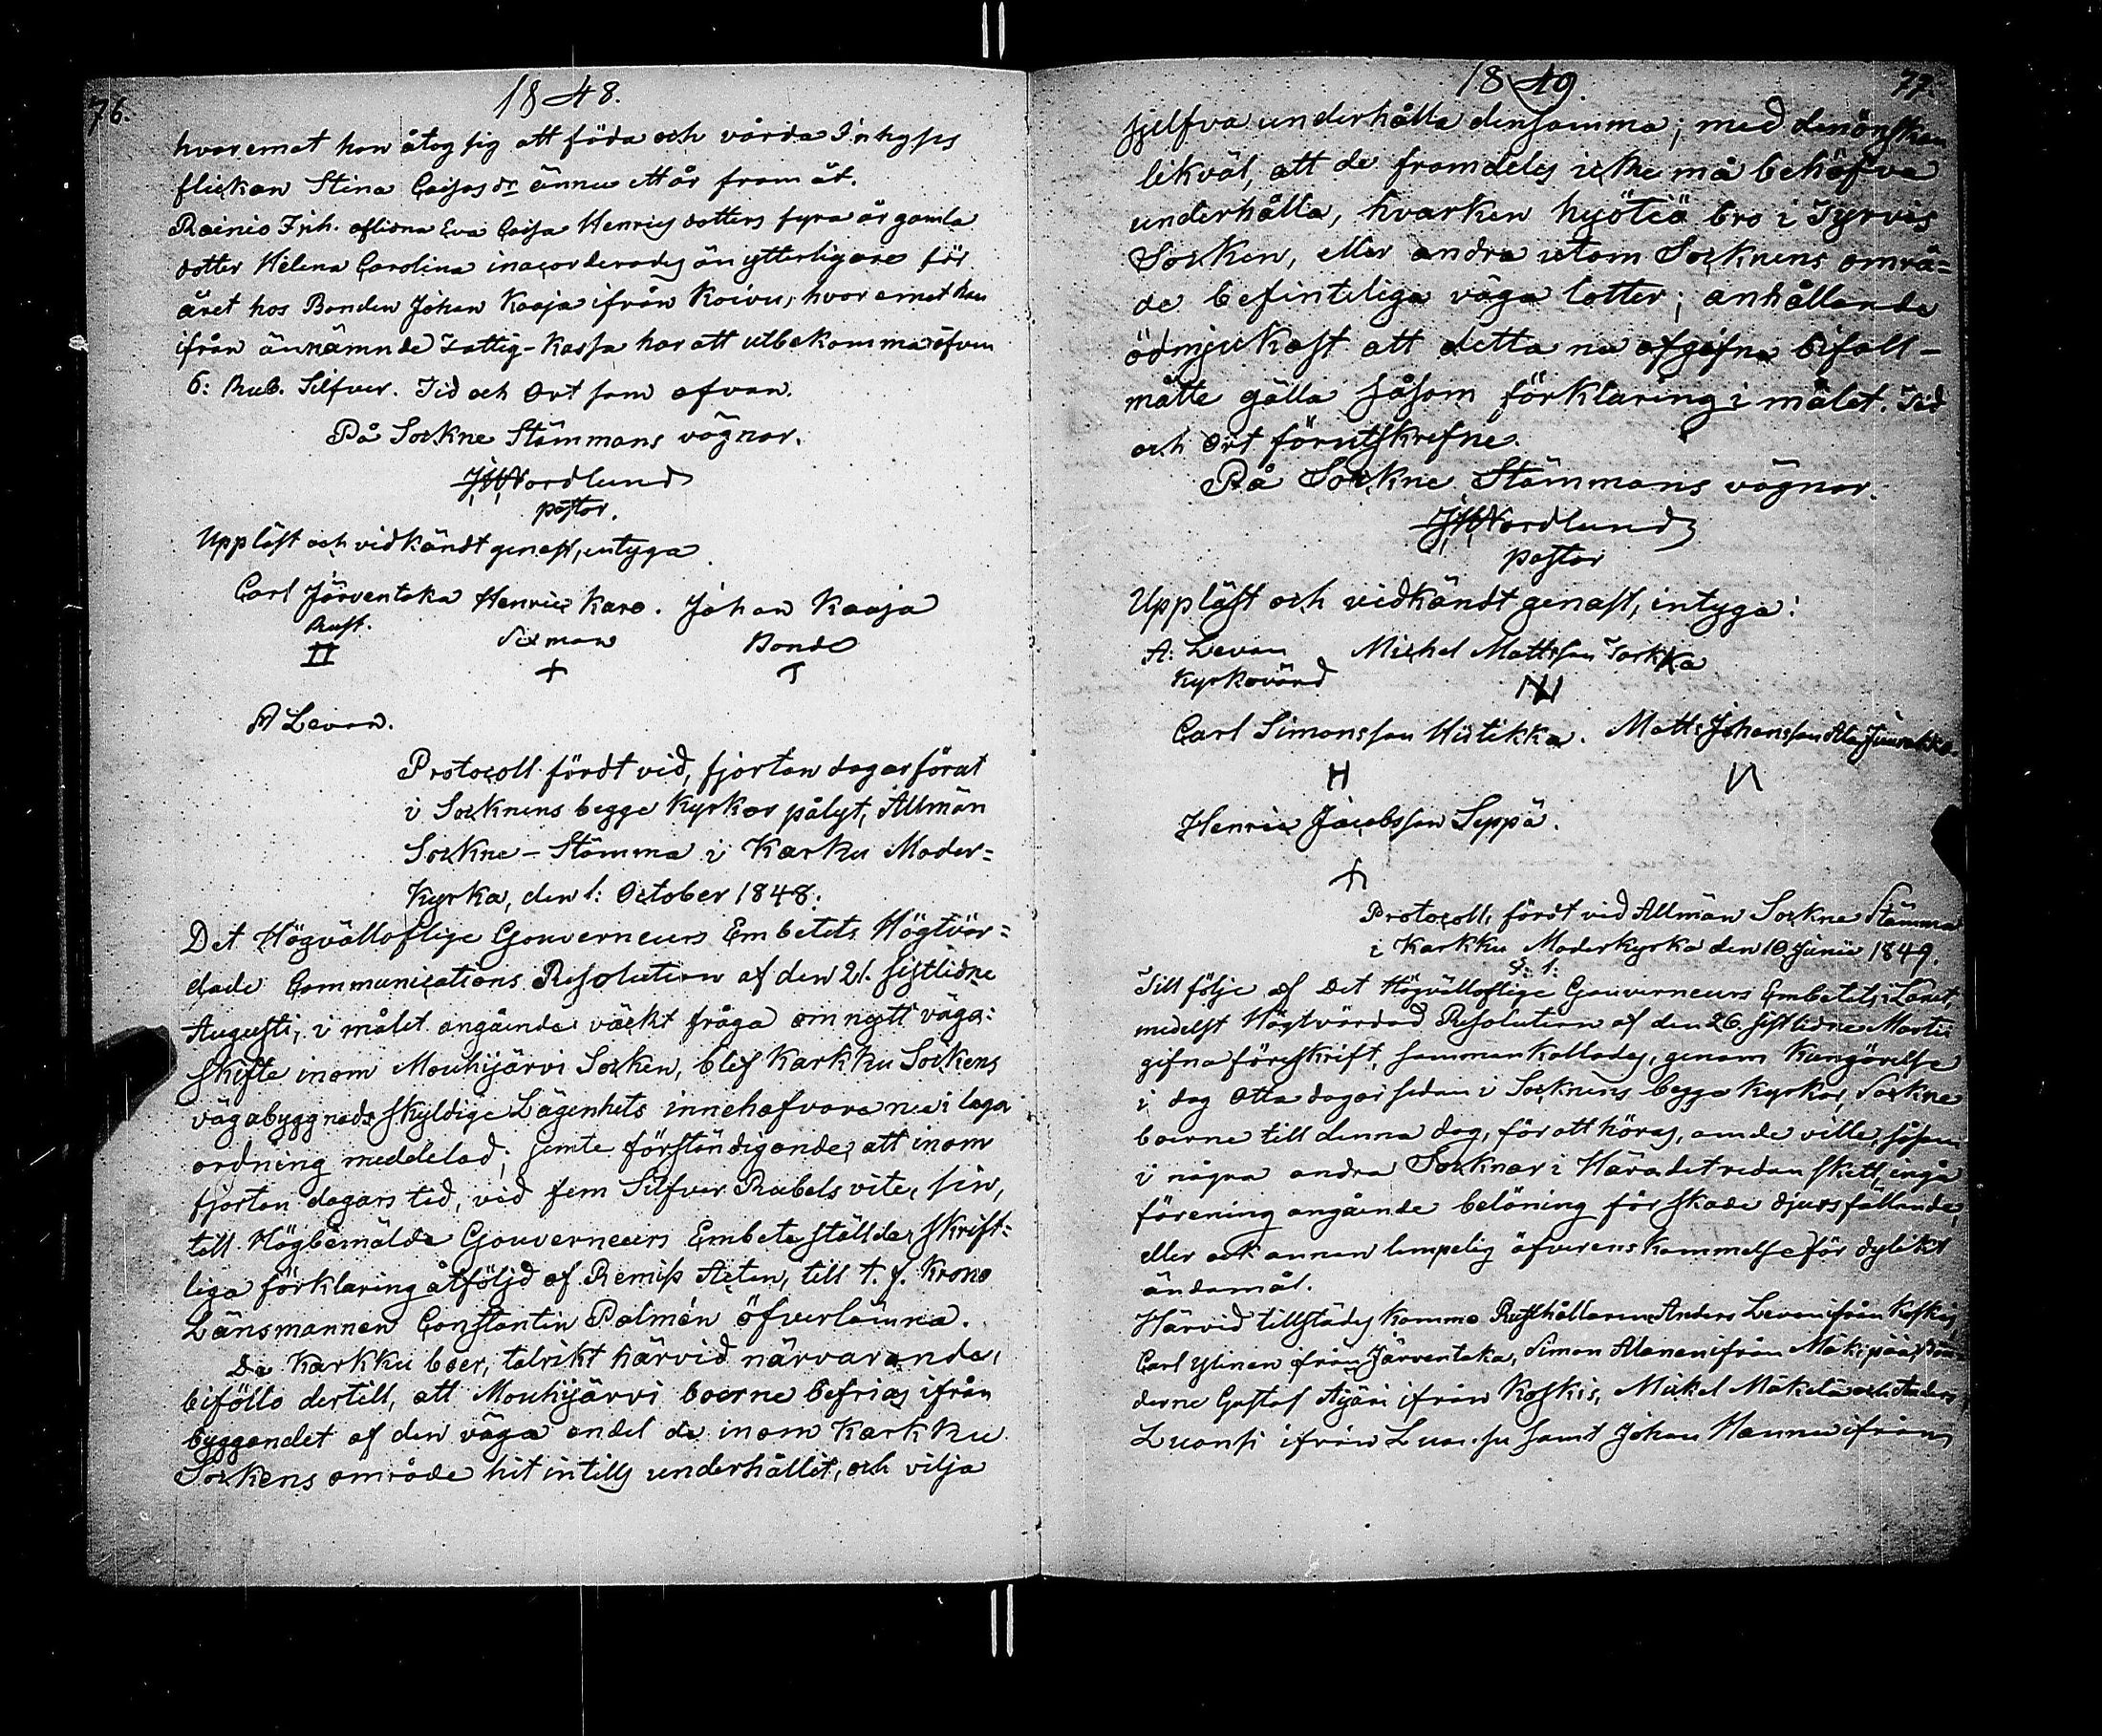 76.
1848.
hvaremot han åtog sig att föda och vårda Inhyses
flickan Stina Caisas dr ännu ett år framåt.
Rainio Inh. aflidna Eva Caisa Henrics dotters fyra år gamla
dotter Helena Carolina inacorderades än ytterligare för
året hos Bonden Johan Kaaja ifrån Koivu, hvaremot han
ifrån ännämnde Fattig-Kassa har att utbekomma äfven
6: Rub. Silfver. Tid och Ort som ofvan.
På Sockne Stämmans vägnar.
JWNordlund
pastor.
Uppläst och vidkändt genast, intyga
Carl Järventaka Henric Karo. Johan Kaaja
Rust. Sexman Bonde
A Levan.
Protocoll fördt vid, fjorton dagar förut
i Socknens begge Kyrkor pålyst, Allmän
Sockne-Stämma i Karku Moder-
Kyrka, den 1: October 1848:
Det Högvälloflige Gouverneurs Embetets Högtvör-
dade Communications Resolution af den 21. sistlidne
Augusti, i målet angående väckt fråga om nytt väga-
skifte inom Mouhijärvi Socken, blef Karkku Sockens
vägabyggnads skyldige Lägenhets innehafvare nu i laga
ordning meddelad; jemte förständigande, att inom
fjorton dagars tid, vid fem Silfver Rubels vite, sin,
till Högbemälde Gouverneurs Embete ställda, skrift-
liga förklaring åtföljd af Remiss Acten, till t. f. Krono
Länsmannen Constantin Palmén öfverlämna.
De Karkku boer, talrikt härvid närvarande,
biföllo dertill, att Mouhijärvi boerne befrias ifrån
byggandet af den väga andel de inom Karkku
Sockens område hit intills underhållit, och vilja
1849.
77.
sjelfva underhålla densamma; med den önskan
likväl, att de framdeles icke må behöfva
underhålla, hvarken hyötiö bro i Tyrvis
Socken, eller andra utom Socknens områ-
de befinteliga väga lotter; anhållande
ödmjukast att detta nu afgifna bifall
måtte gälla såsom förklaring i målet. Tid
och Ort förutskrefne.
På Sockne Stämmans vägnar.
JWNordlund
pastor
Uppläst och vidkändt genast, intyga:
A: Levan Michel Mattsson Torkka
Kyrkovärd
Carl Simonsson Hiitikka. Matts Johansson
Henric Jacobsson Seppä.
Protocoll, fördt vid Allmän Sockne Stämma
i Karkku Moderkyrka den 10. Junii 1849.
§: 1:
Till följe af Det Högvälloflige Gouverneurs Embetets i Länet,
medelst Högtvördad Resolution af den 26. sistlidne Martii
gifna föreskrift, sammankallades, genom Kungörelse
i dag Otta dagar sedan i Socknens begge Kyrkor, Sockne
boerne till denna dag, för att höras, om de ville, såsom
i några andra Socknar i Häradet redan skett, ingå
förening angående belöning för skade djurs fällande,
eller ock annan lempelig öfverenskommelse för dylikt
ändamål.
Härvid tillstädes kommo Rusthållarene Anders Levan ifrån Koskis,
Carl Ylinen ifrån Järventaka, Simon Alanen ifrån Mäkipää, Bön-
derne Gustaf Äijäri ifrån Koskis, Mickel Mäkelä och Anders
Luansi ifrån Luansu samt Johan Hannu ifrån